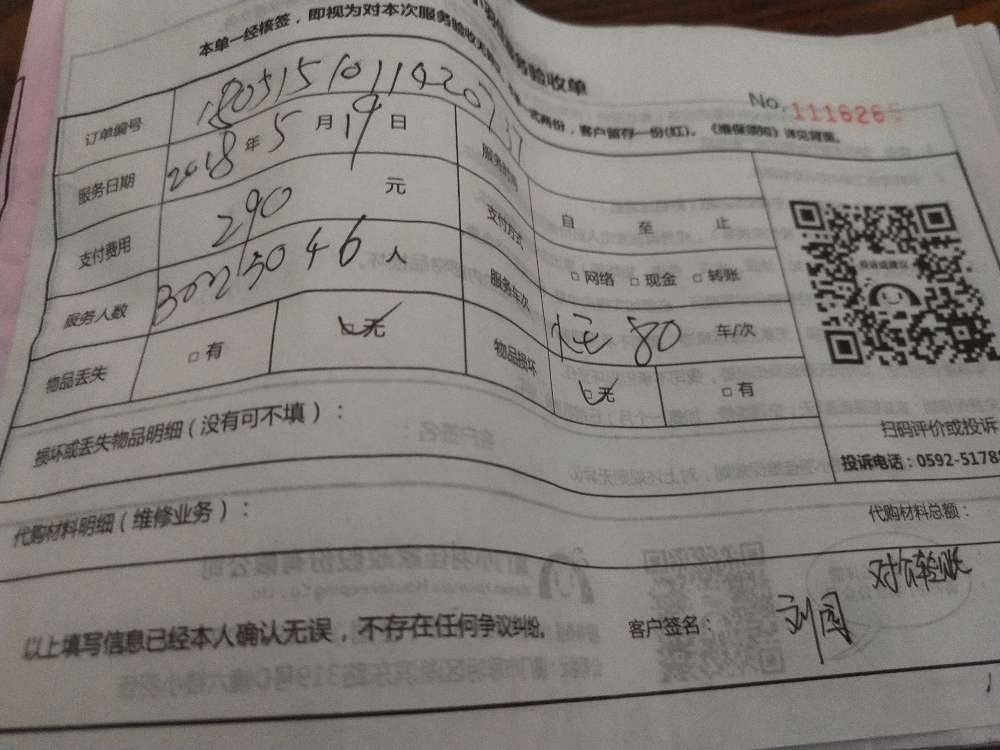 务验收单
本单一经核签，即视为对本次服务验收无
No.111626
式两份，客户留存一份(红)。《维保须知》详见背面。
订单编号 180515101142073 服务时间 自 至 止
服务日期 2018年5月19日 支付方式 □网络 □现金 □转账
支付费用 290 元 服务车次 80 车/次
服务人数 人
物品丢失 □有 □无 物品损坏 □无 □有
投诉或建议
扫码评价或投诉
投诉电话：0592-5178
损坏或丢失物品明细（没有可不填）：
代购材料明细（维修业务）： 代购材料总额：
对公转账
以上填写信息已经本人确认无误，不存在任何争议纠纷。 客户签名：